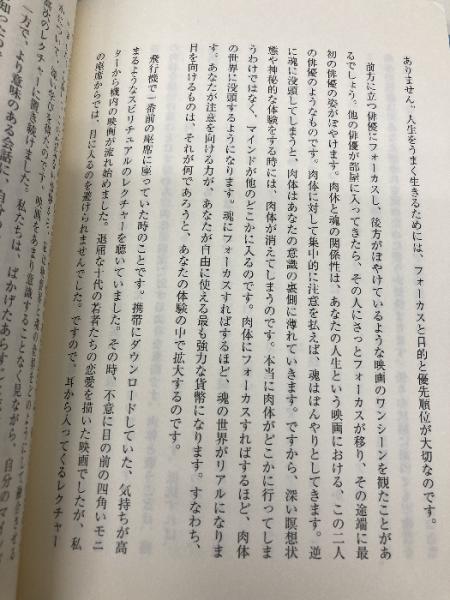 ありません。人生をうまく生きるためには、フォーカスと目的と優先順位が大切なのです。
前方に立つ俳優にフォーカスし、後方がぼやけているような映画のワンシーンを観たことがあ
るでしょう。他の俳優が部屋に入ってきたら、その人にさっとフォーカスが移り、その途端に最
初の俳優の姿がぼやけます。肉体と魂の関係性は、あなたの人生という映画における、この二人
の俳優のようなものです。肉体に対して集中的に注意を払えば、魂はぼんやりとしてきます。逆
に魂に没頭してしまうと、肉体はあなたの意識の裏側に薄れていきます。ですから、深い瞑想状
態や神秘的な体験をする時には、肉体が消えてしまうのです。本当に肉体がどこかに行ってしま
うわけではなく、マインドが他のどこかに入るのです。肉体にフォーカスすればするほど、肉体
の世界に没頭するようになります。魂にフォーカスすればするほど、魂の世界がリアルになりま
す。あなたが注意を向ける力が、あなたが自由に使える最も強力な貨幣になります。すなわち、
目を向けるものは、それが何であろうと、あなたの体験の中で拡大するのです。
飛行機で一番前の座席に座っていた時のことです。携帯にダウンロードしていた、気持ちが高
まるようなスピリチュアルのレクチャーを聴いていました。その時、不意に目の前の四角いモニ
ターから機内の映画が流れ始めました。退屈な十代の若者たちの恋愛を描いた映画でしたが、私
の座席からでは、目に入るのを避けられませんでした。ですので、耳から入ってくるレクチャー
レクチャーに置き続けました。映画をあまり意識することなく見ながら、自分のマイ
一方で、より意味のある会話に、自分の
知ったの
私たちは、ばかげたあらすじ